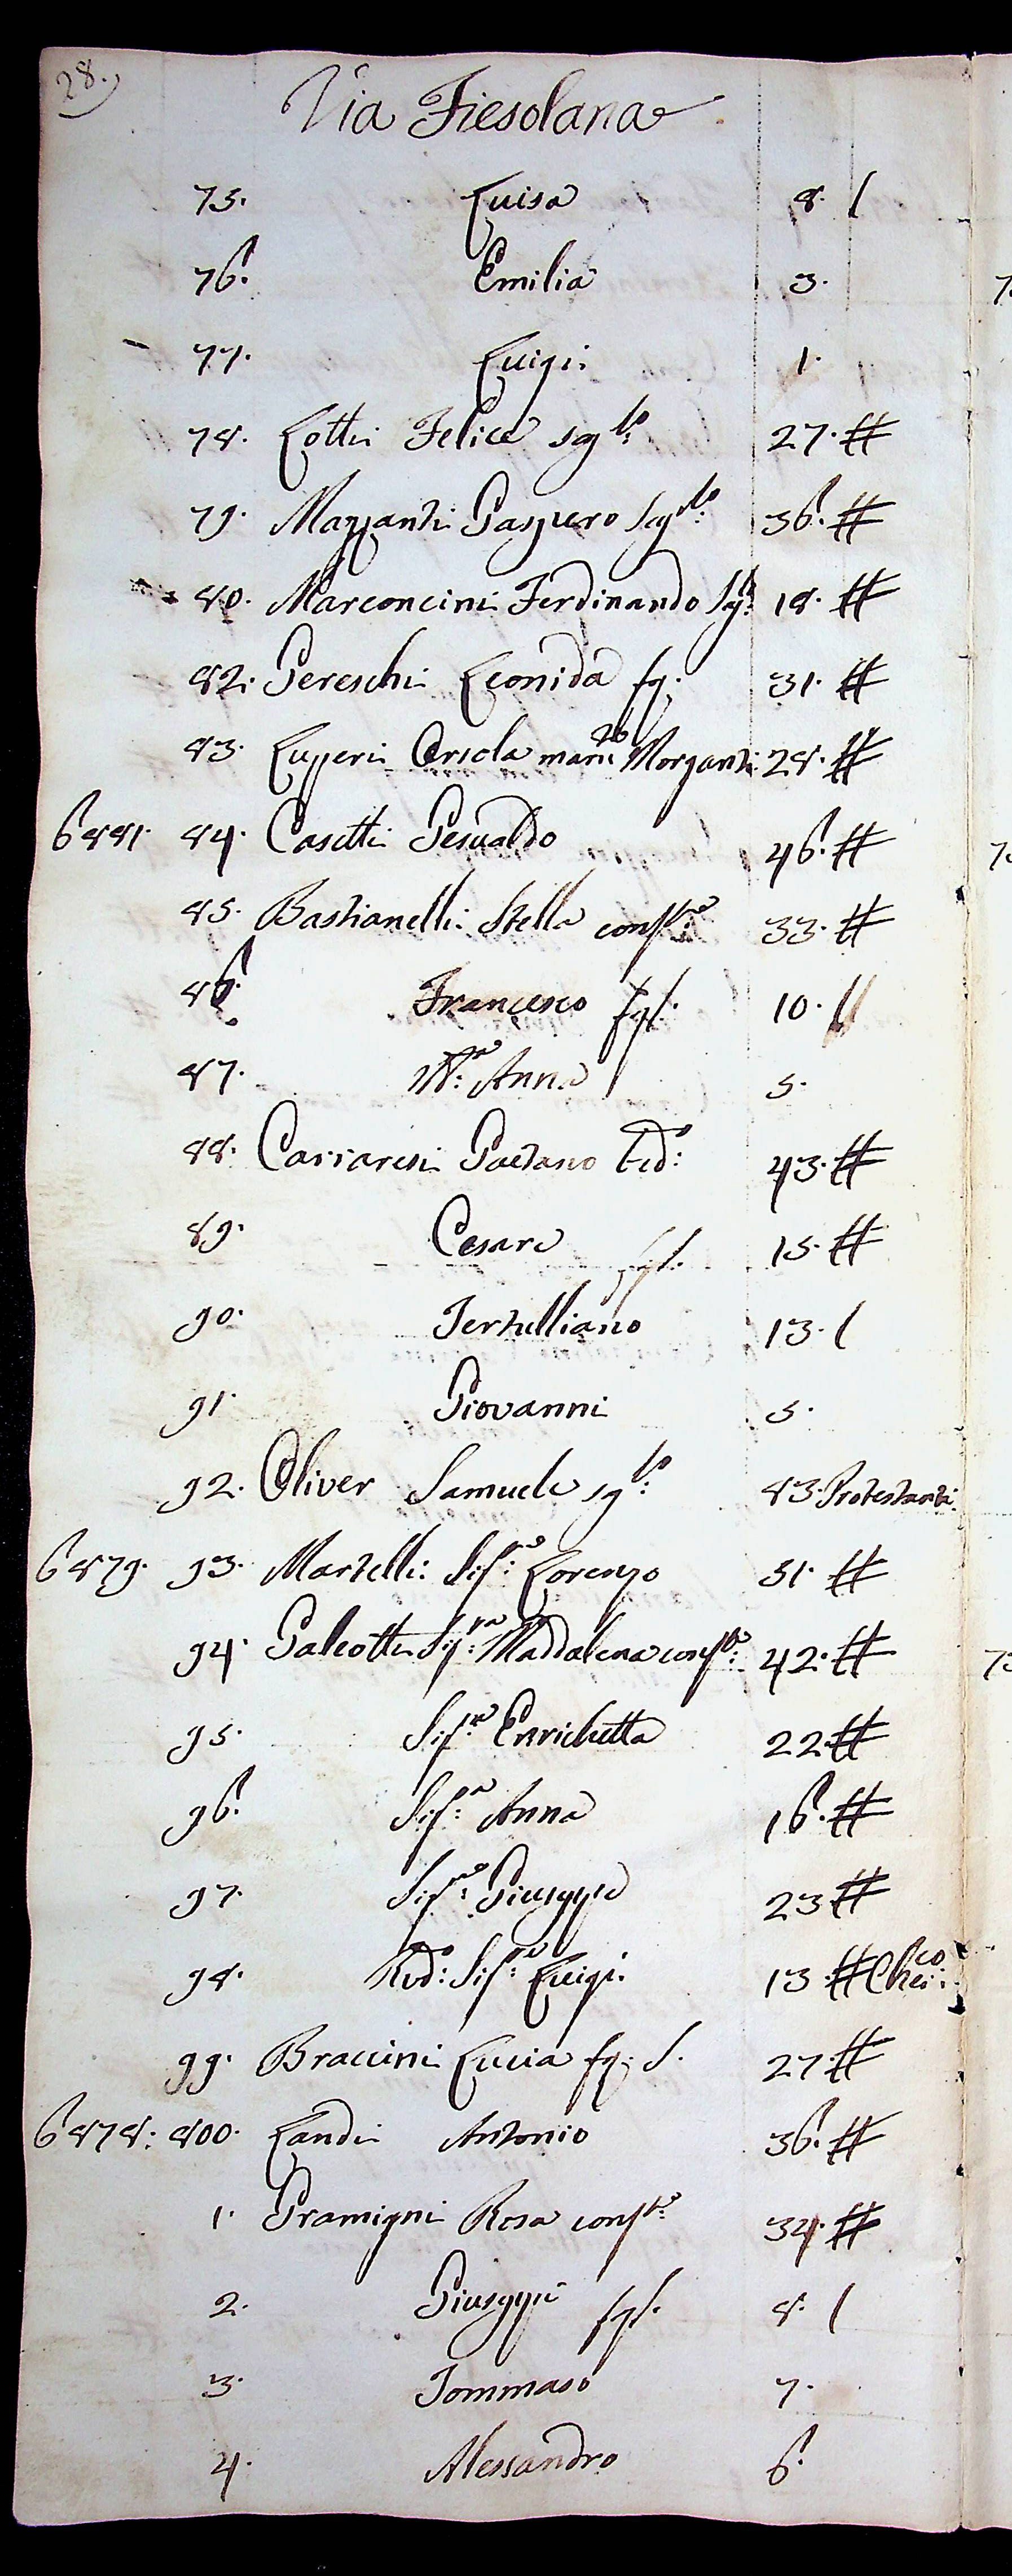 28.
Via Fiesolana
75. Luisa 8. /
76. Emilia 3.
77. Luigi 1.
78. Lotti Felice sg.lo 27. #
79. Mazzanti Gaspero sg.lo 36. #
80. Marconcini Ferdinando sg.lo 18. #
82. Pereschi Leonida fg. 31. #
83. Lupperi Orsola mari.ta Morganti 28. #
6881. 84. Casetti Gesualdo 46. #
85. Bastianelli Stella cons.te 33. #
86. Francesco fgl. 10. //
87. M.a Anna 5.
88. Carraresi Gaetano Ved.o 43. #
89. Cesare fgl. 15. #
90. Tertulliano 13. /
91. Giovanni 5.
92. Oliver Samuele sg.lo 83. Protestanti
6879. 93. Martelli Sig.re Lorenzo 51. #
94. Galeotti Sig.ra Maddalena cons.te 42. #
95. Sig.ra Enrichetta 22. #
96. Sig.a Anna 16. #
97. Sig.re Giuseppe 23. #
98. Rvd.o Sig.re Luigi 13. # Che.co
99. Braccini Lucia fg. S. 27. #
6878. 800. Landi Antonio 36. #
1. Gramigni Rosa cons.te 34. #
2. Giuseppe fgl. 8. /
3. Tommaso 7.
4. Alessandro 6.